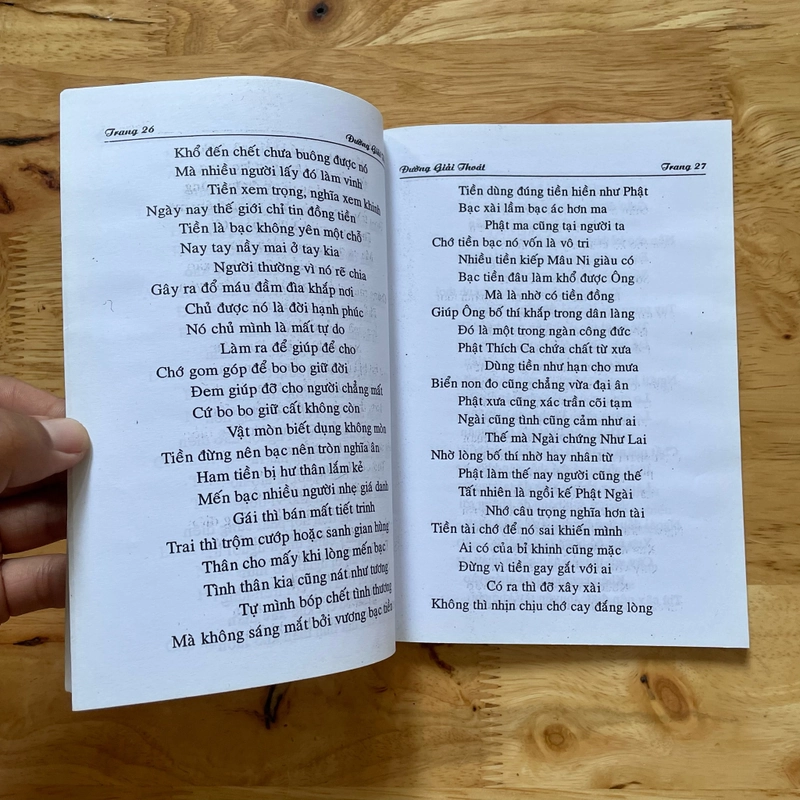 Trang 26
Đường Giải
Khổ đến chết chưa buông được nó
Mà nhiều người lấy đó làm vinh
Tiền xem trọng, nghĩa xem khinh
Ngày nay thế giới chỉ tin đồng tiền
Tiền là bạc không yên một chỗ
Nay tay nầy mai ở tay kia
Người thường vì nó rẽ chia
Gây ra đổ máu đầm đìa khắp nơi
Chủ được nó là đời hạnh phúc
Nó chủ mình là mất tự do
Làm ra để giúp để cho
Chớ gom góp để bo bo giữ đời
Đem giúp đỡ cho người chẳng mất
Cứ bo bo giữ cất không còn
Vật mòn biết dụng không mòn
Tiền đừng nên bạc nên tròn nghĩa ân
Ham tiền bị hư thân lắm kẻ
Mến bạc nhiều người nhẹ giá danh
Gái thì bán mất tiết trinh
Trai thì trộm cướp hoặc sanh gian hùng
Thân cho mấy khi lòng mến bạc
Tình thân kia cũng nát như tương
Tự mình bóp chết tình thương
Mà không sáng mắt bởi vương bạc tiền
Đường Giải Thoát
Trang 27
Tiền dùng đúng tiền hiền như Phật
Bạc xài lầm bạc ác hơn ma
Phật ma cũng tại người ta
Chớ tiền bạc nó vốn là vô tri
Nhiều tiền kiếp Mâu Ni giàu có
Bạc tiền đâu làm khổ được Ông
Mà là nhờ có tiền đồng
Giúp Ông bố thí khắp trong dân làng
Đó là một trong ngàn công đức
Phật Thích Ca chứa chất từ xưa
Dùng tiền như hạn cho mưa
Biển non đo cũng chẳng vừa đại ân
Phật xưa cũng xác trần cõi tạm
Ngài cũng tình cũng cảm như ai
Thế mà Ngài chứng Như Lai
Nhờ lòng bố thí nhờ hay nhân từ
Phật làm thế nay người cũng thế
Tất nhiên là ngồi kế Phật Ngài
Nhớ câu trọng nghĩa hơn tài
Tiền tài chớ để nó sai khiến mình
Ai có của bỉ khinh cũng mặc
Đừng vì tiền gay gắt với ai
Có ra thì đỡ xây xài
Không thì nhịn chịu chớ cay đắng lòng